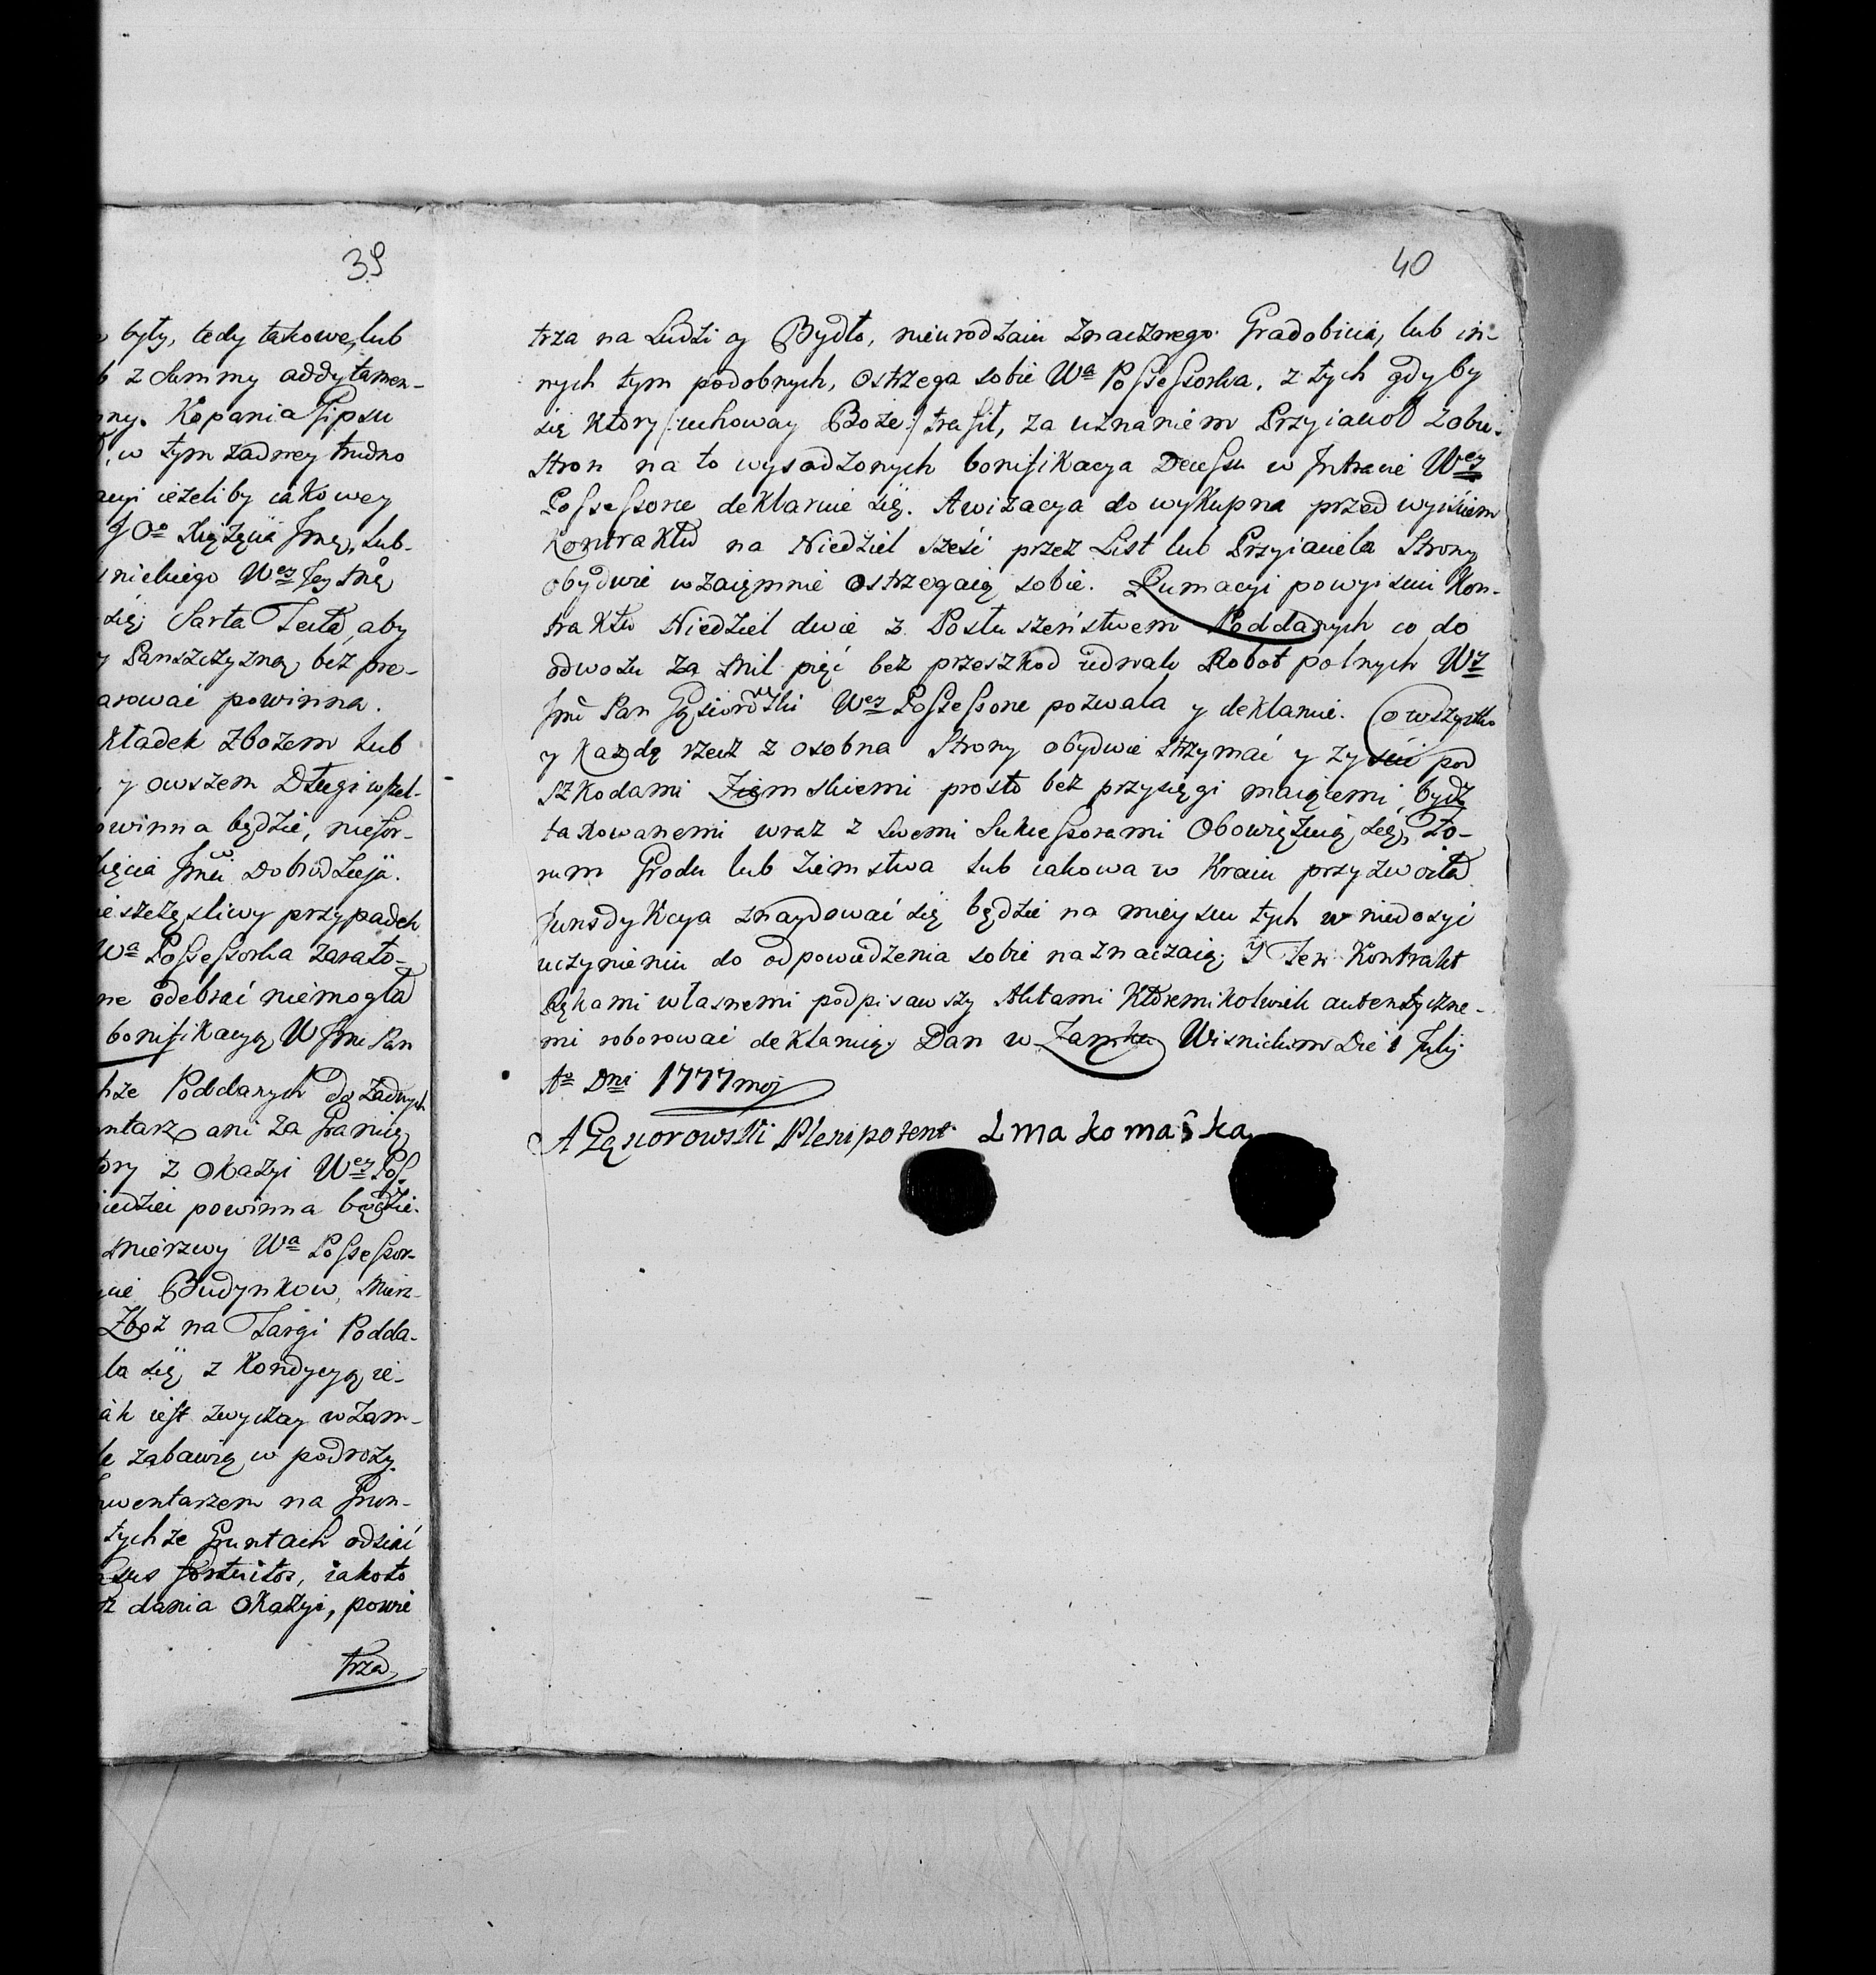 39
były, tedy takowe, lub
z Summy addytamen-
ny. Kopania Gipsu
, w tym zadney trudno
acyi ieżeliby iakowey
JOo Xiążęcia Jmę, lub-
snickiego Wey Jey Mę
się, Sarta Tecta, aby
Pańszczyzną, bez pre-
arować powinna.
kładek zbożem lub
y owszem Długi wszel-
owinna będzie, niefor-
ięcia Jmci Dobrodzieja.
ieszczęsliwy przypadek
Wa Possessorka zarato-
ne odebrać niemogła
bonifikacyą W Jmc Pan
hże Poddanych do żadnych
ntarz ani za Granicę
tóry z okazyi Wey Pos-
iedzieć powinna będzie.
mierzwy Wa Possessor-
cie Budynkow, Mierz-
Zboż na Targi Podda-
la się, z Kondycyą, ie-
ak iest zwyczay w Zam-
le zabawią w podroży.
nwentarzem na Grun-
tychże Gruntach odsiać
asus fortuitos, iakoto
z dania okazyi, powie
trza
40
trza na Ludzi y Bydło, nieurodzaiu znacznego Gradobicia, lub in-
nych tym podobnych, ostrzega sobie Wa Possessorka, z tych gdyby
się ktory /:uchoway Boże:/ trafił, za uznaniem Przyiacioł z obu-
stron na to wysadzonych bonifikacya Decessu w Intracie Wey
Possessorce deklaruie się. Awizacya do wykupna przed wyiściem
Kontraktu na Niedziel sześć przez List lub Przyiaciela Strony
obydwie wzaięmnie ostrzegaią sobie. Rumacyi powyisciu Kon-
traktu Niedziel dwie z Posłuszeństwem Poddanych co do
odwozu za Mil pięć bez przeszkod iednak Robot polnych Wy
Jmć Pan Gąsiorowski Wey Possessorce pozwala y deklaruie. Co wszystko
y każdą rzecz z osobna Strony obydwie strzymać y zyscić pod
szkodami Ziemskiemi prosto bez przysięgi maiącemi bydź
taxowanemi wraz z swemi Sukcessorami Obowiązuią się, Fo-
rum Grodu lub Ziemstwa lub iakowa w Kraiu przyzwoita
Jurisdykcya znaydować się będzie na mieyscu tych w niedosyć
uczynieniu do odpowiedzenia sobie naznaczaią. Y Ten Kontrakt
Rękami własnemi podpisawszy Aktami Ktoremikolwiek autentyczne-
mi roborować deklaruią. Dan w Zamku Wisnickim Die 1 Julij
Ao Dni 1777mo
A Gąsiorowski Plenipotent L makomaska